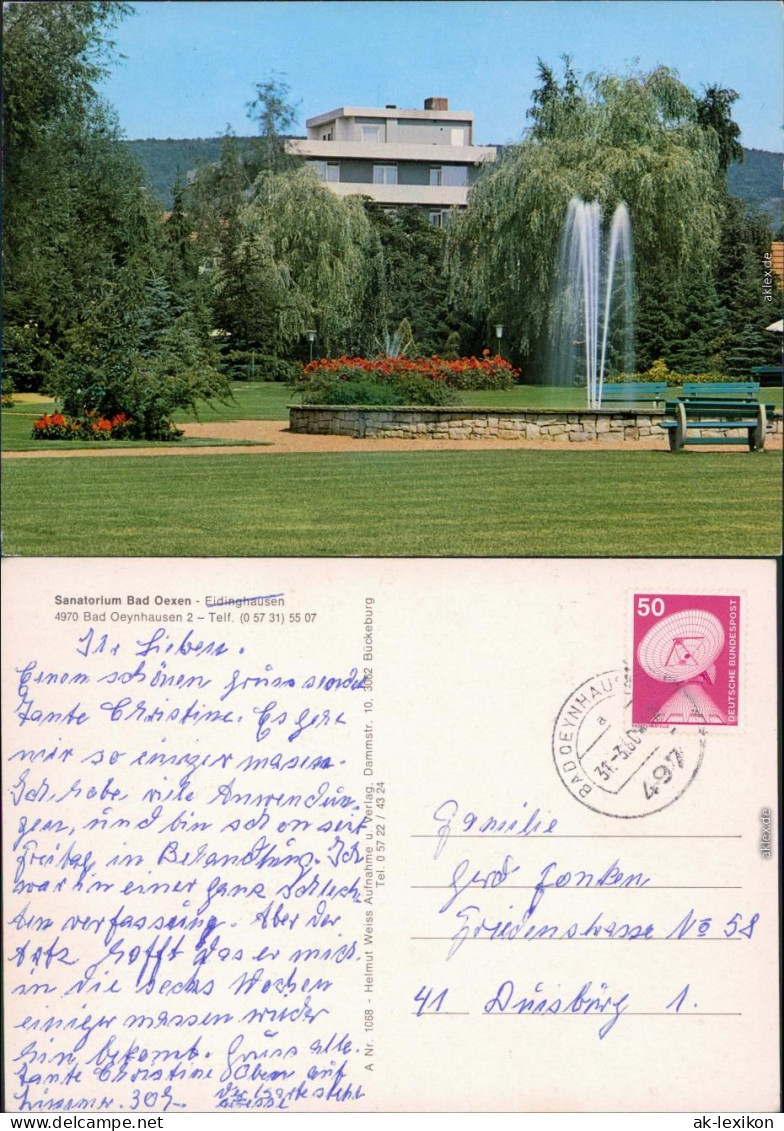 aklex.de
Sanatorium Bad Oexen - Eidinghausen
4970 Bad Oeynhausen 2 – Telf. (0 57 31) 55 07
A Nr. 1068 - Helmut Weiss Aufnahme u. Verlag, Dammstr. 10, 3062 Bückeburg
Tel. 0 57 22 / 43 24
Ihr Lieben.
Einen schönen Gruss sendet
Tante Christine. Es geht
mir so einiger masen.
Ich habe viele Anwendun-
gen, und bin schon seit
Freitag in Behandlung. Ich
war in einer ganz schlech-
ten verfassung. Aber der
Hofft das er mich
in die sechs Wochen
einiger massen wieder
hin bekomt. Gruss alle.
Tante Christine Oben auf
Karte steht
Zimmer. 309.
50
DEUTSCHE BUNDESPOST
BAD OEYNHAUSEN
a
31.-3.80
497
Familie
Gerd Fonken
Friedenstrasse No 58
41 Duisburg 1.
aklex.de
ak-lexikon.de
ak-lexikon